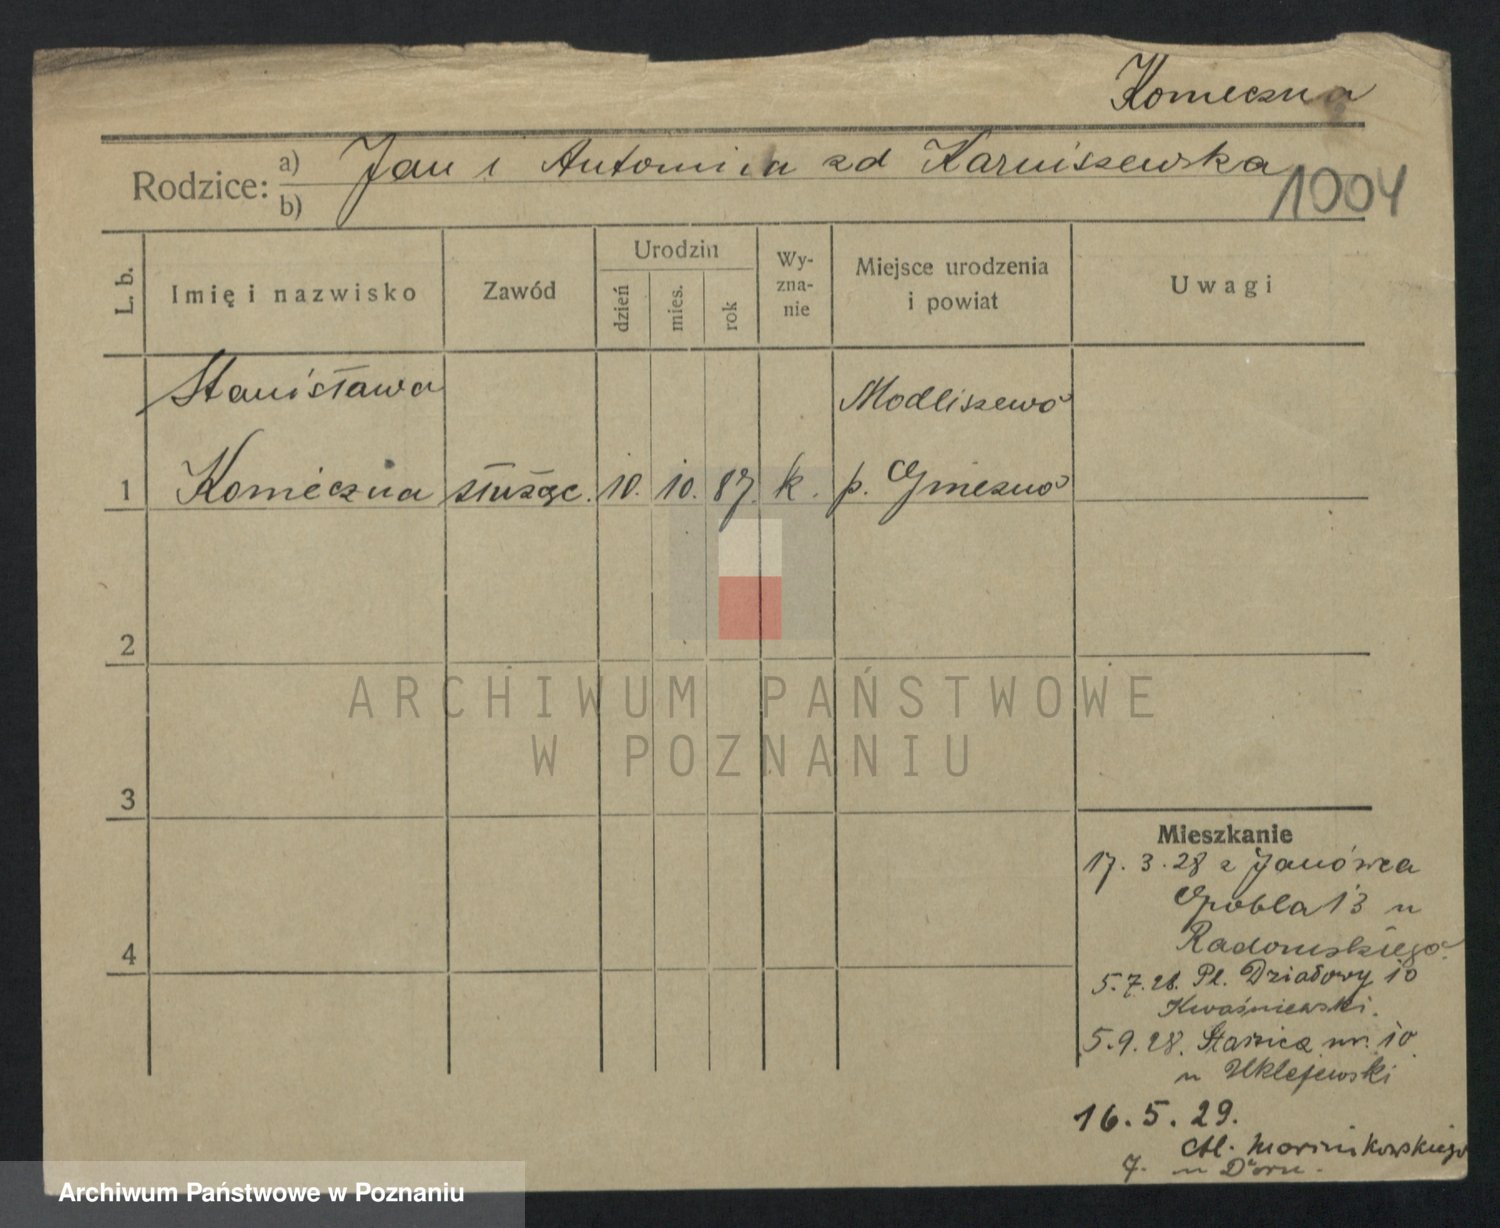 Konieczna
Rodzice: a) Jan i Antonina zd Karniszewska
b)
1004
L. b.
Imię i nazwisko
Zawód
Urodzin
dzień
mies.
rok
Wy-
zna-
nie
Miejsce urodzenia
i powiat
Uwagi
Stanisława
Modliszewo
1 Konieczna służąc. 10. 10. 87. k. p. Gniezno
2
ARCHIWUM PAŃSTWOWE
W POZNANIU
3
4
Mieszkanie
17. 3. 28 z Janówca
13 u
Radomskiego
5. 7. 28. Pl. Działowy 10
Kwaśniewski.
5. 9. 28. Staszica nr. 10
u Uklejewski
16. 5. 29.
Al. Marcinkowskiego
7. u Dorn.
Archiwum Państwowe w Poznaniu